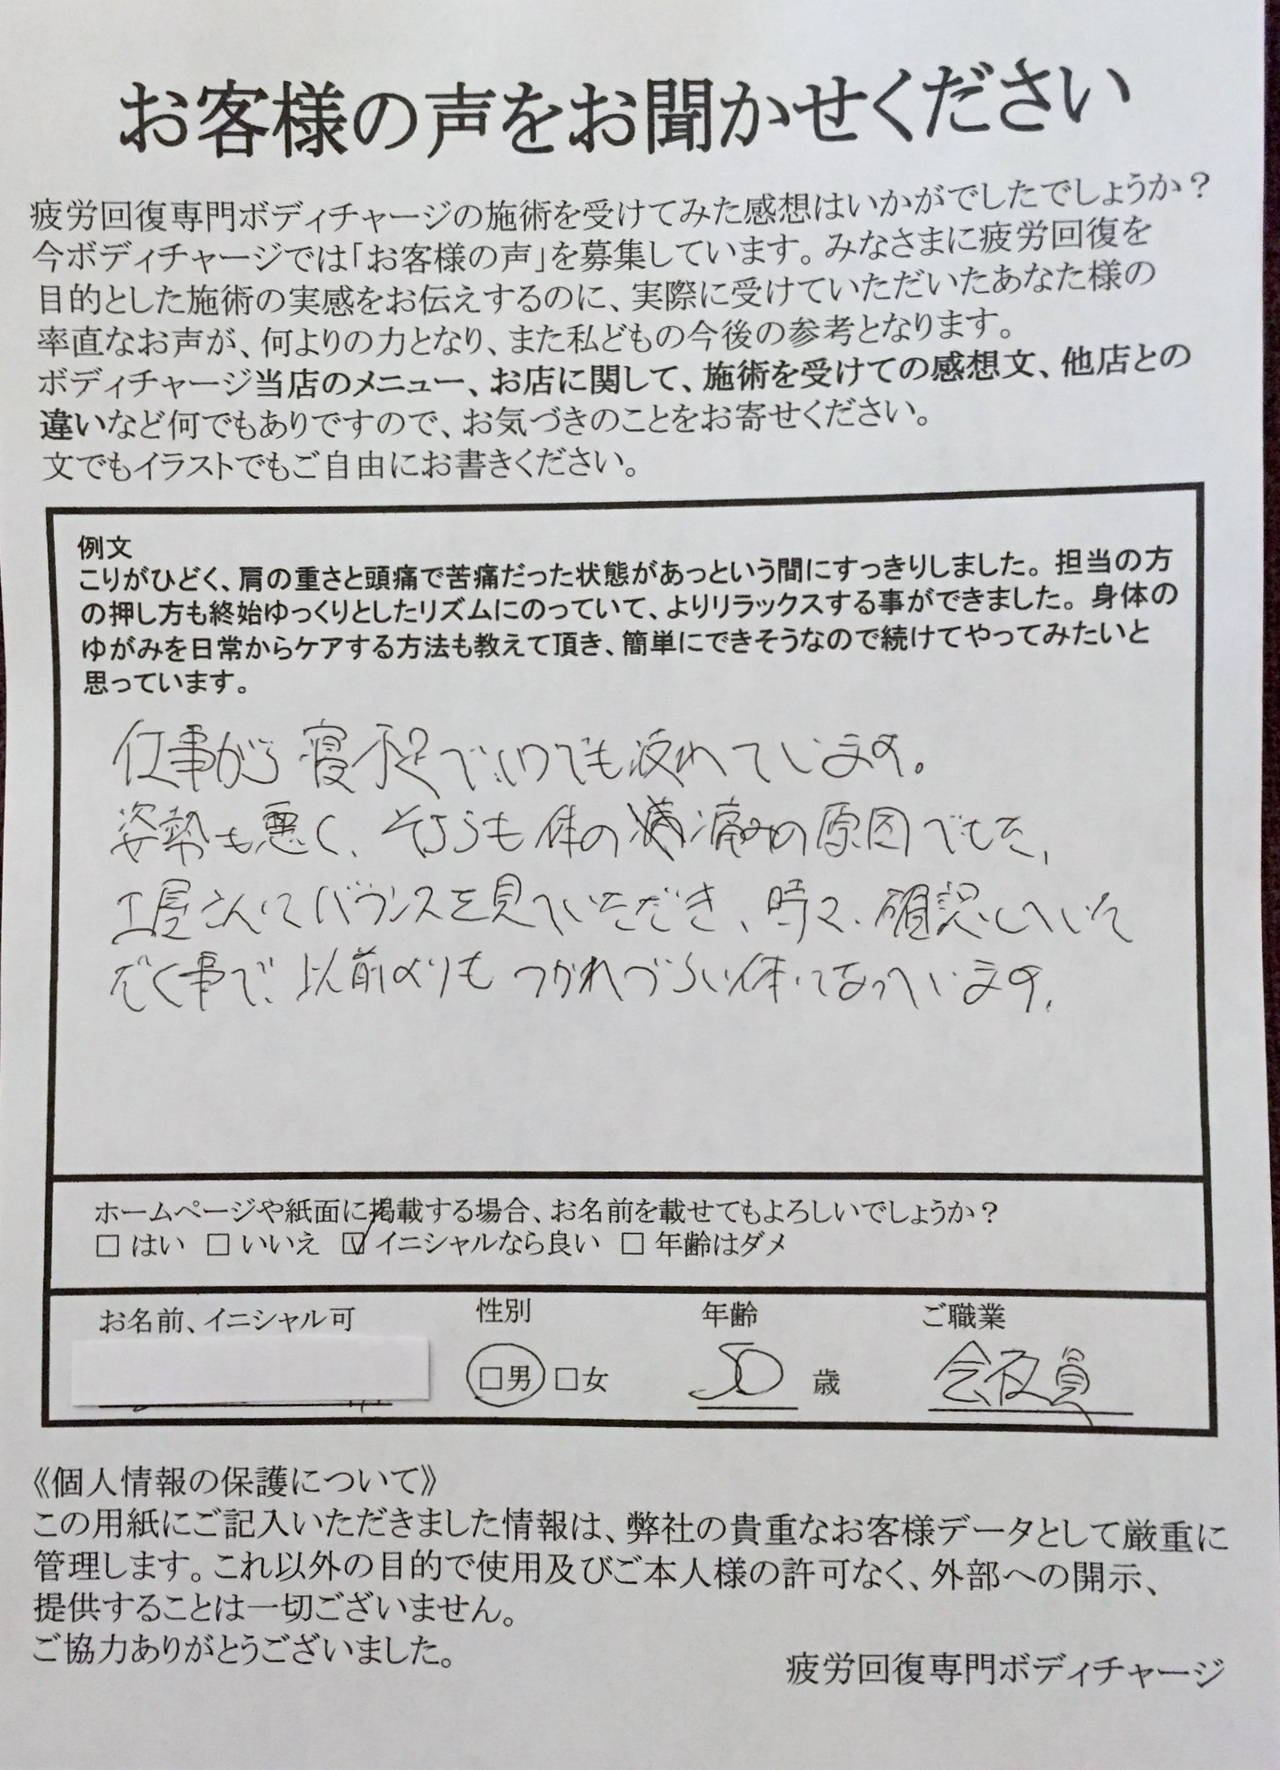 お客様の声をお聞かせください
疲労回復専門ボディチャージの施術を受けてみた感想はいかがでしたでしょうか?
今ボディチャージでは「お客様の声」を募集しています。みなさまに疲労回復を
目的とした施術の実感をお伝えするのに、実際に受けていただいたあなた様の
率直なお声が、何よりの力となり、また私どもの今後の参考となります。
ボディチャージ当店のメニュー、お店に関して、施術を受けての感想文、他店との
違いなど何でもありですので、お気づきのことをお寄せください。
文でもイラストでもご自由にお書きください。
例文
こりがひどく、肩の重さと頭痛で苦痛だった状態があっという間にすっきりしました。担当の方
の押し方も終始ゆっくりとしたリズムにのっていて、よりリラックスする事ができました。身体の
ゆがみを日常からケアする方法も教えて頂き、簡単にできそうなので続けてやってみたいと
思っています。
仕事がら寝不足で、いつでも疲れています。
姿勢も悪く、そちらも体の痛みの原因でした。
土屋さんにバランスを見ていただき、時々、確認していた
だく事で、以前よりもつかれづらい体になっています。
ホームページや紙面に掲載する場合、お名前を載せてもよろしいでしょうか?
□ はい □ いいえ ☑ イニシャルなら良い □ 年齢はダメ
お名前、イニシャル可 性別 年齢 ご職業
□男 □女 50 歳 会社員
《個人情報の保護について》
この用紙にご記入いただきました情報は、弊社の貴重なお客様データとして厳重に
管理します。これ以外の目的で使用及びご本人様の許可なく、外部への開示、
提供することは一切ございません。
ご協力ありがとうございました。
疲労回復専門ボディチャージ